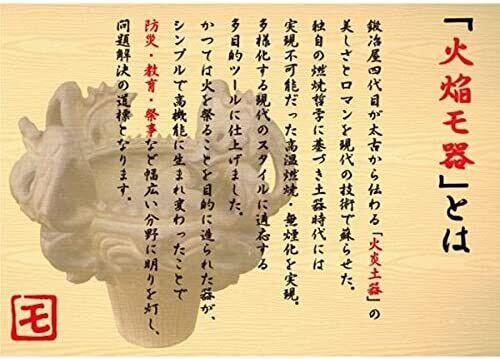 「火焔モ器」とは
鍛冶屋四代目が太古から伝わる「火炎土器」の
美しさとロマンを現代の技術で蘇らせた。
独自の燃焼哲学に基づき土器時代には
実現不可能だった高温燃焼・無煙化を実現。
多様化する現代のスタイルに適応する
多目的ツールに仕上げました。
かつては火を祭ることを目的に造られた器が、
シンプルで高機能に生まれ変わったことで
防災・教育・祭事など幅広い分野に明りを灯し、
問題解決の道標となります。
モ